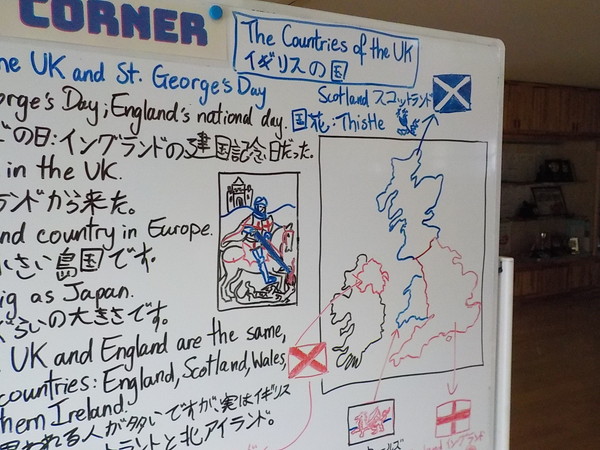 CORNER
The Countries of the UK
イギリスの国
UK and St. George's Day
Day; England's national day.
の日:イングランドの建国記念日だった。
in the UK.
ランドから来た。
country in Europe.
小さい島国です。
as Japan.
ぐらいの大きさです。
UK and England are the same,
countries: England, Scotland, Wales,
Ireland.
思われる人が多いですが、実はイギリス
トランドと北アイランド。
Scotland スコットランド
国花:Thistle
イングランド